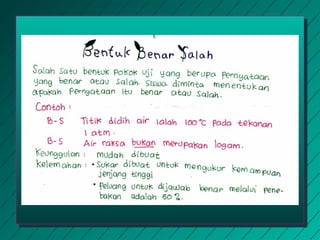 Bentuk Benar Salah
Salah satu bentuk pokok uji yang berupa pernyataan
yang benar atau salah siswa diminta menentukan
apakah pernyataan itu benar atau salah.
Contoh :
B - S Titik didih air ialah 100°C pada tekanan
1 atm.
B - S Air raksa bukan merupakan logam.
Keunggulan : mudah dibuat
Kelemahan : • Sukar dibuat untuk mengukur kemampuan
jenjang tinggi
• Peluang untuk dijawab benar melalui pene-
bakan adalah 50%.